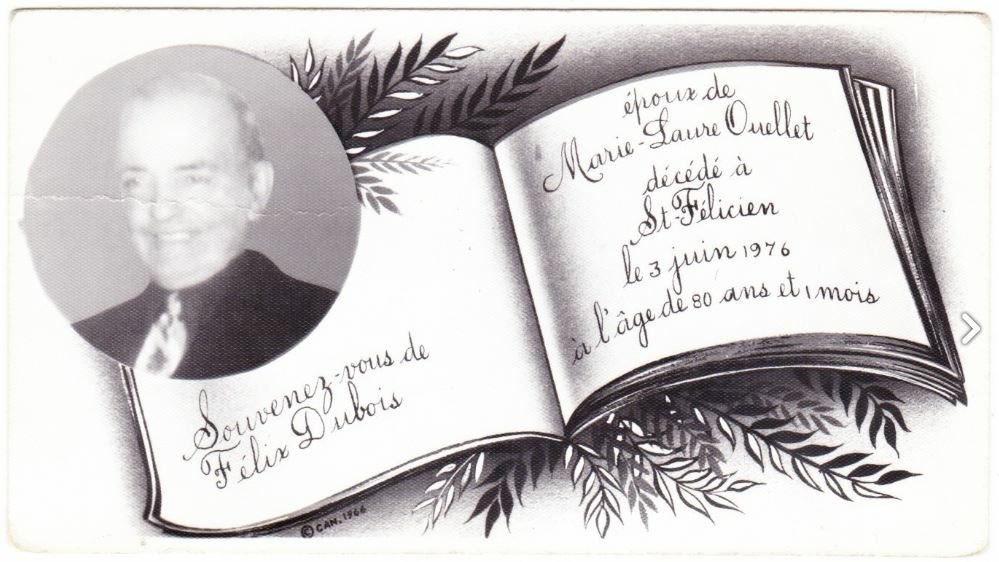 Souvenez-vous de
Félix Dubois
époux de
Marie-Laure Ouellet
décédé à
St-Félicien
le 3 juin 1976
à l'âge de 80 ans et 1 mois
© CAN. 1966